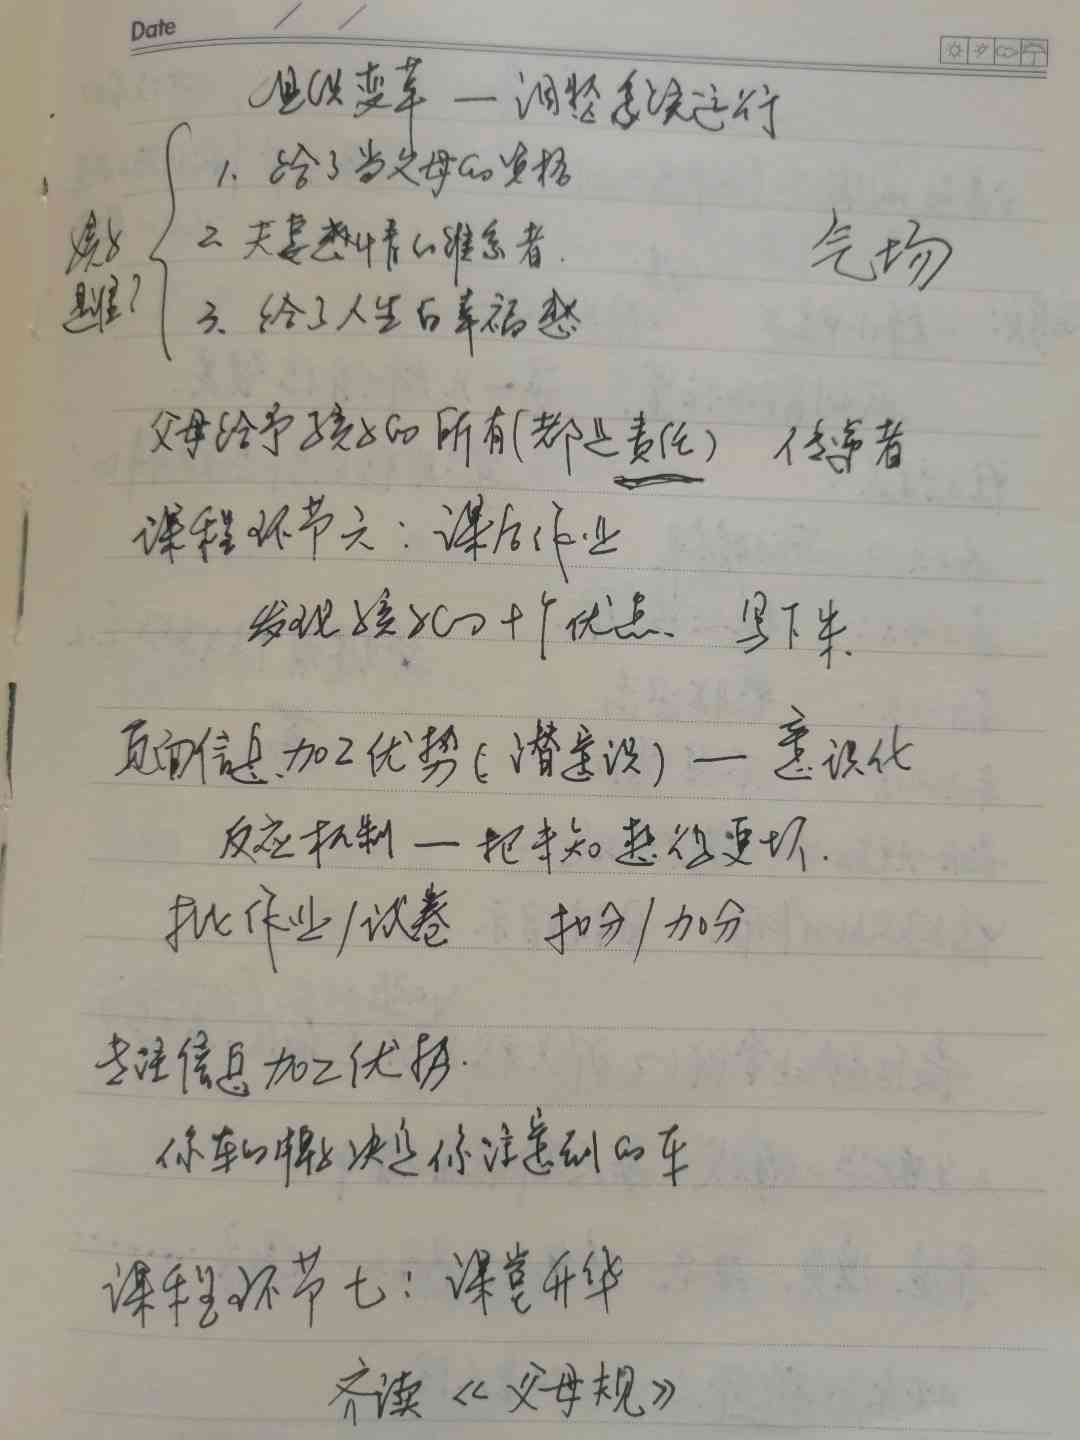 Date / /
组织变革 — 调整系统运行
孩子是谁?
1. 给了当父母的资格
2. 夫妻感情的维系者.
3. 给了人生的幸福感
气场
父母给予孩子的所有(都是责任) 传承者
课程环节六: 课后作业
发现孩子的十个优点、写下来.
负面信息加工优势(潜意识) — 意识化
反应机制 — 把未知想得更坏.
批作业/试卷 扣分/加分
专注信息加工优势.
你车的牌子决定你注意到的车
课程环节七: 课堂升华
齐读《父母规》